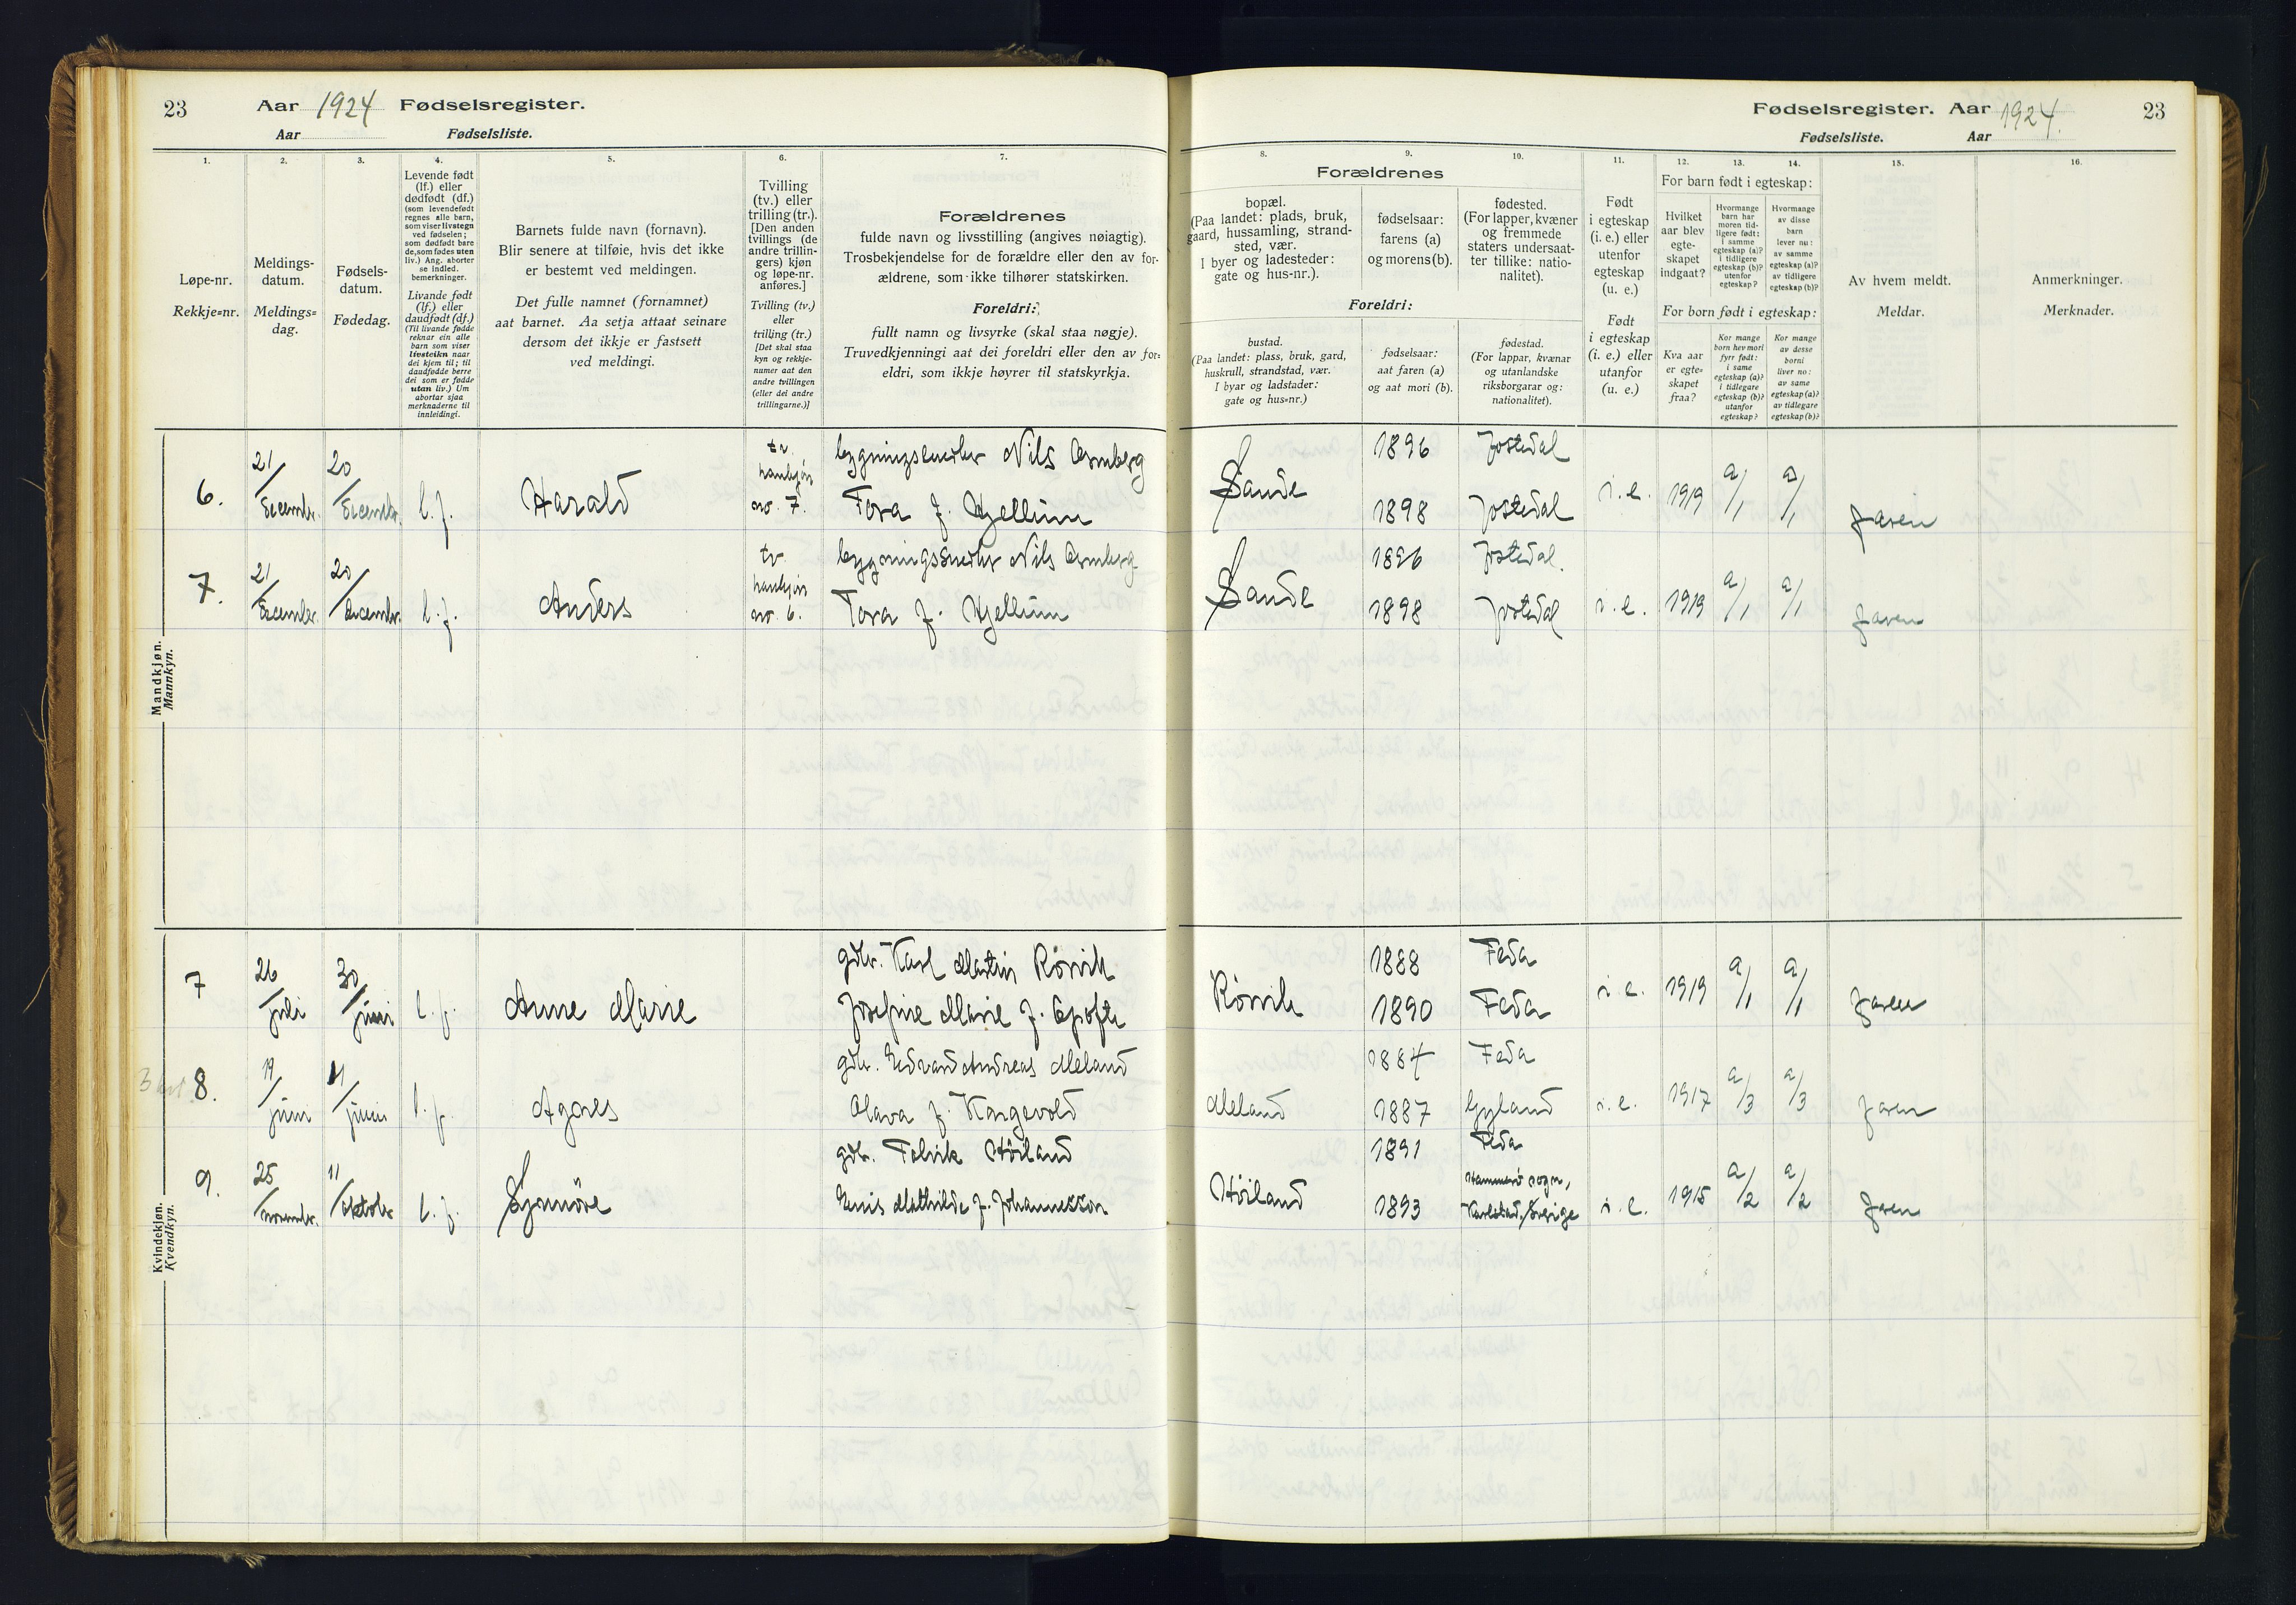 23 Aar 1924 Fødselsregister.
Aar Fødselsliste.
1.
Løpe-nr.
Rekkje=nr.
2.
Meldings-
datum.
Meldings=
dag.
3.
Fødsels-
datum.
Fødedag.
4.
Levende født
(lf.) eller
dødfødt (df.)
(som levendefødt
regnes alle barn,
som viser livstegn
ved fødselen;
som dødfødt bare
de, som fødes uten
liv.) Ang. aborter
se indled.
bemerkninger.
Livande født
(lf.) eller
daudfødt (df.)
(Til livande fødde
reknar ein alle
barn som viser
livsteikn naar
dei kjem til; til
daudfødde berre
dei som er fødde
utan liv.) Um
abortar sjaa
merknaderne til
innleidingi.
5.
Barnets fulde navn (fornavn).
Blir senere at tilføie, hvis det ikke
er bestemt ved meldingen.
Det fulle namnet (fornamnet)
aat barnet. Aa setja attaat seinare
dersom det ikkje er fastsett
ved meldingi.
6.
Tvilling
(tv.) eller
trilling (tr.).
[Den anden
tvillings (de
andre trillin-
gers) kjøn
og løpe-nr.
anføres.]
Tvilling (tv.)
eller
trilling (tr.)
[Det skal staa
kyn og rekkje-
numer aat den
andre tvillingen
(eller dei andre
trillingarne.)]
7.
Forældrenes
fulde navn og livsstilling (angives nøiagtig).
Trosbekjendelse for de forældre eller den av for-
ældrene, som ikke tilhører statskirken.
Foreldri:
fullt namn og livsyrke (skal staa nøgje).
Truvedkjenningi aat dei foreldri eller den av for=
eldri, som ikkje høyrer til statskyrkja.
Fødselsregister. Aar 1924. 23
Fødselsliste. Aar
8.
Forældrenes
bopæl.
(Paa landet: plads, bruk,
gaard, hussamling, strand-
sted, vær.
I byer og ladesteder:
gate og hus-nr.).
Foreldri:
bustad.
(Paa landet: plass, bruk, gard,
huskrull, strandstad, vær.
I byar og ladstader:
gate og hus=nr.)
9.
fødselsaar:
farens (a)
og morens (b).
fødselsaar:
aat faren (a)
og aat mori (b).
10.
fødested.
(For lapper, kvæner
og fremmede
staters undersaat-
ter tillike: natio-
nalitet).
fødestad.
(For lappar, kvænar
og utanlandske
riksborgarar og:
nationalitet).
11.
Født
i egteskap
(i. e.) eller
utenfor
egteskap
(u. e.)
Født
i egteskap
(i. e.) eller
utanfor
(u. e.)
12. 13. 14.
For barn født i egteskap:
Hvilket
aar blev
egte-
skapet
indgaat?
Hvormange
barn har
moren tid-
ligere født:
i samme
egteskap (a)?
i tidligere
egteskap (b)?
utenfor
egteskap?
Hvormange
av disse
barn
lever nu:
av samme
egteskap (a)?
av tidligere
egteskap (b)?
For born født i egteskap:
Kva aar
er egte=
skapet
fraa?
Kor mange
born hev mori
fyrr født:
i same
egteskap (a)?
i tidlegare
egteskap (b)?
utanfor
egteskap?
Kor mange
av desse
borni
liver no:
av same
egteskap (a)?
av tidlegare
egteskap (b)?
15.
Av hvem meldt.
Meldar.
16.
Anmerkninger.
Merknader.
Mandkjøn.
Mannkyn.
6. 21/December. 20/December. l.f. Harald tv. hankjøn no. 7. Nils
Tora f. Kjellum Sande 1896 1898 Jostedal Jostedal i.e. 1919 a/1 a/1 faren
7. 21/December. 20/December. l.f. Anders tv. hankjøn no. 6. Nils
Tora f. Kjellum Sande 1896 1898 Jostedal. Jostedal i.e. 1919 a/1 a/1 faren
Kvindekjøn.
Kvendkyn.
7 26/juli 30/juni l.f. Anne Marie gdbr. Karl Martin Rørvik
Josefine Marie f. Rørvik 1888 1890 Feda Feda i.e. 1919 a/1 a/1 faren
8. 19/juni 11/juni l.f. Agnes gdbr. Edvard Andreas Meland
f. Kongevold Meland 1884 1887 Feda Gyland i.e. 1917 a/3 a/3 faren
9. 25/november. 11/oktober l.f. Synnöve gdbr. Høiland
Mathilde f. Johannesson Høiland 1891 1893 Feda Hammarö sogn, Karlstad, Sverige i.e. 1915 a/2 a/2 faren